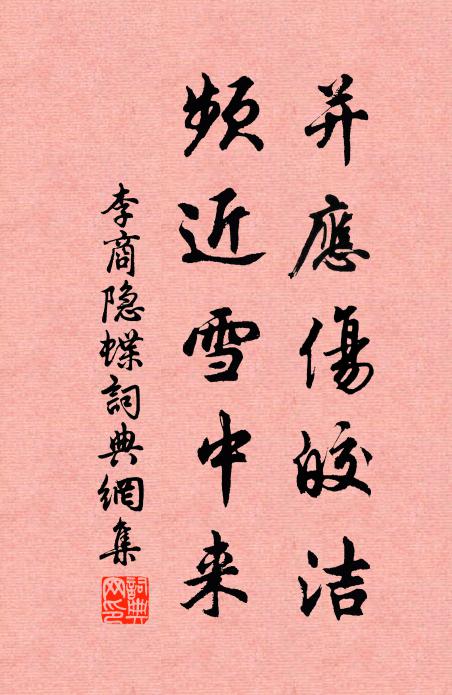 并應傷皎洁
頻近雪中来
李商隐蝶詞典網集
詞典网印